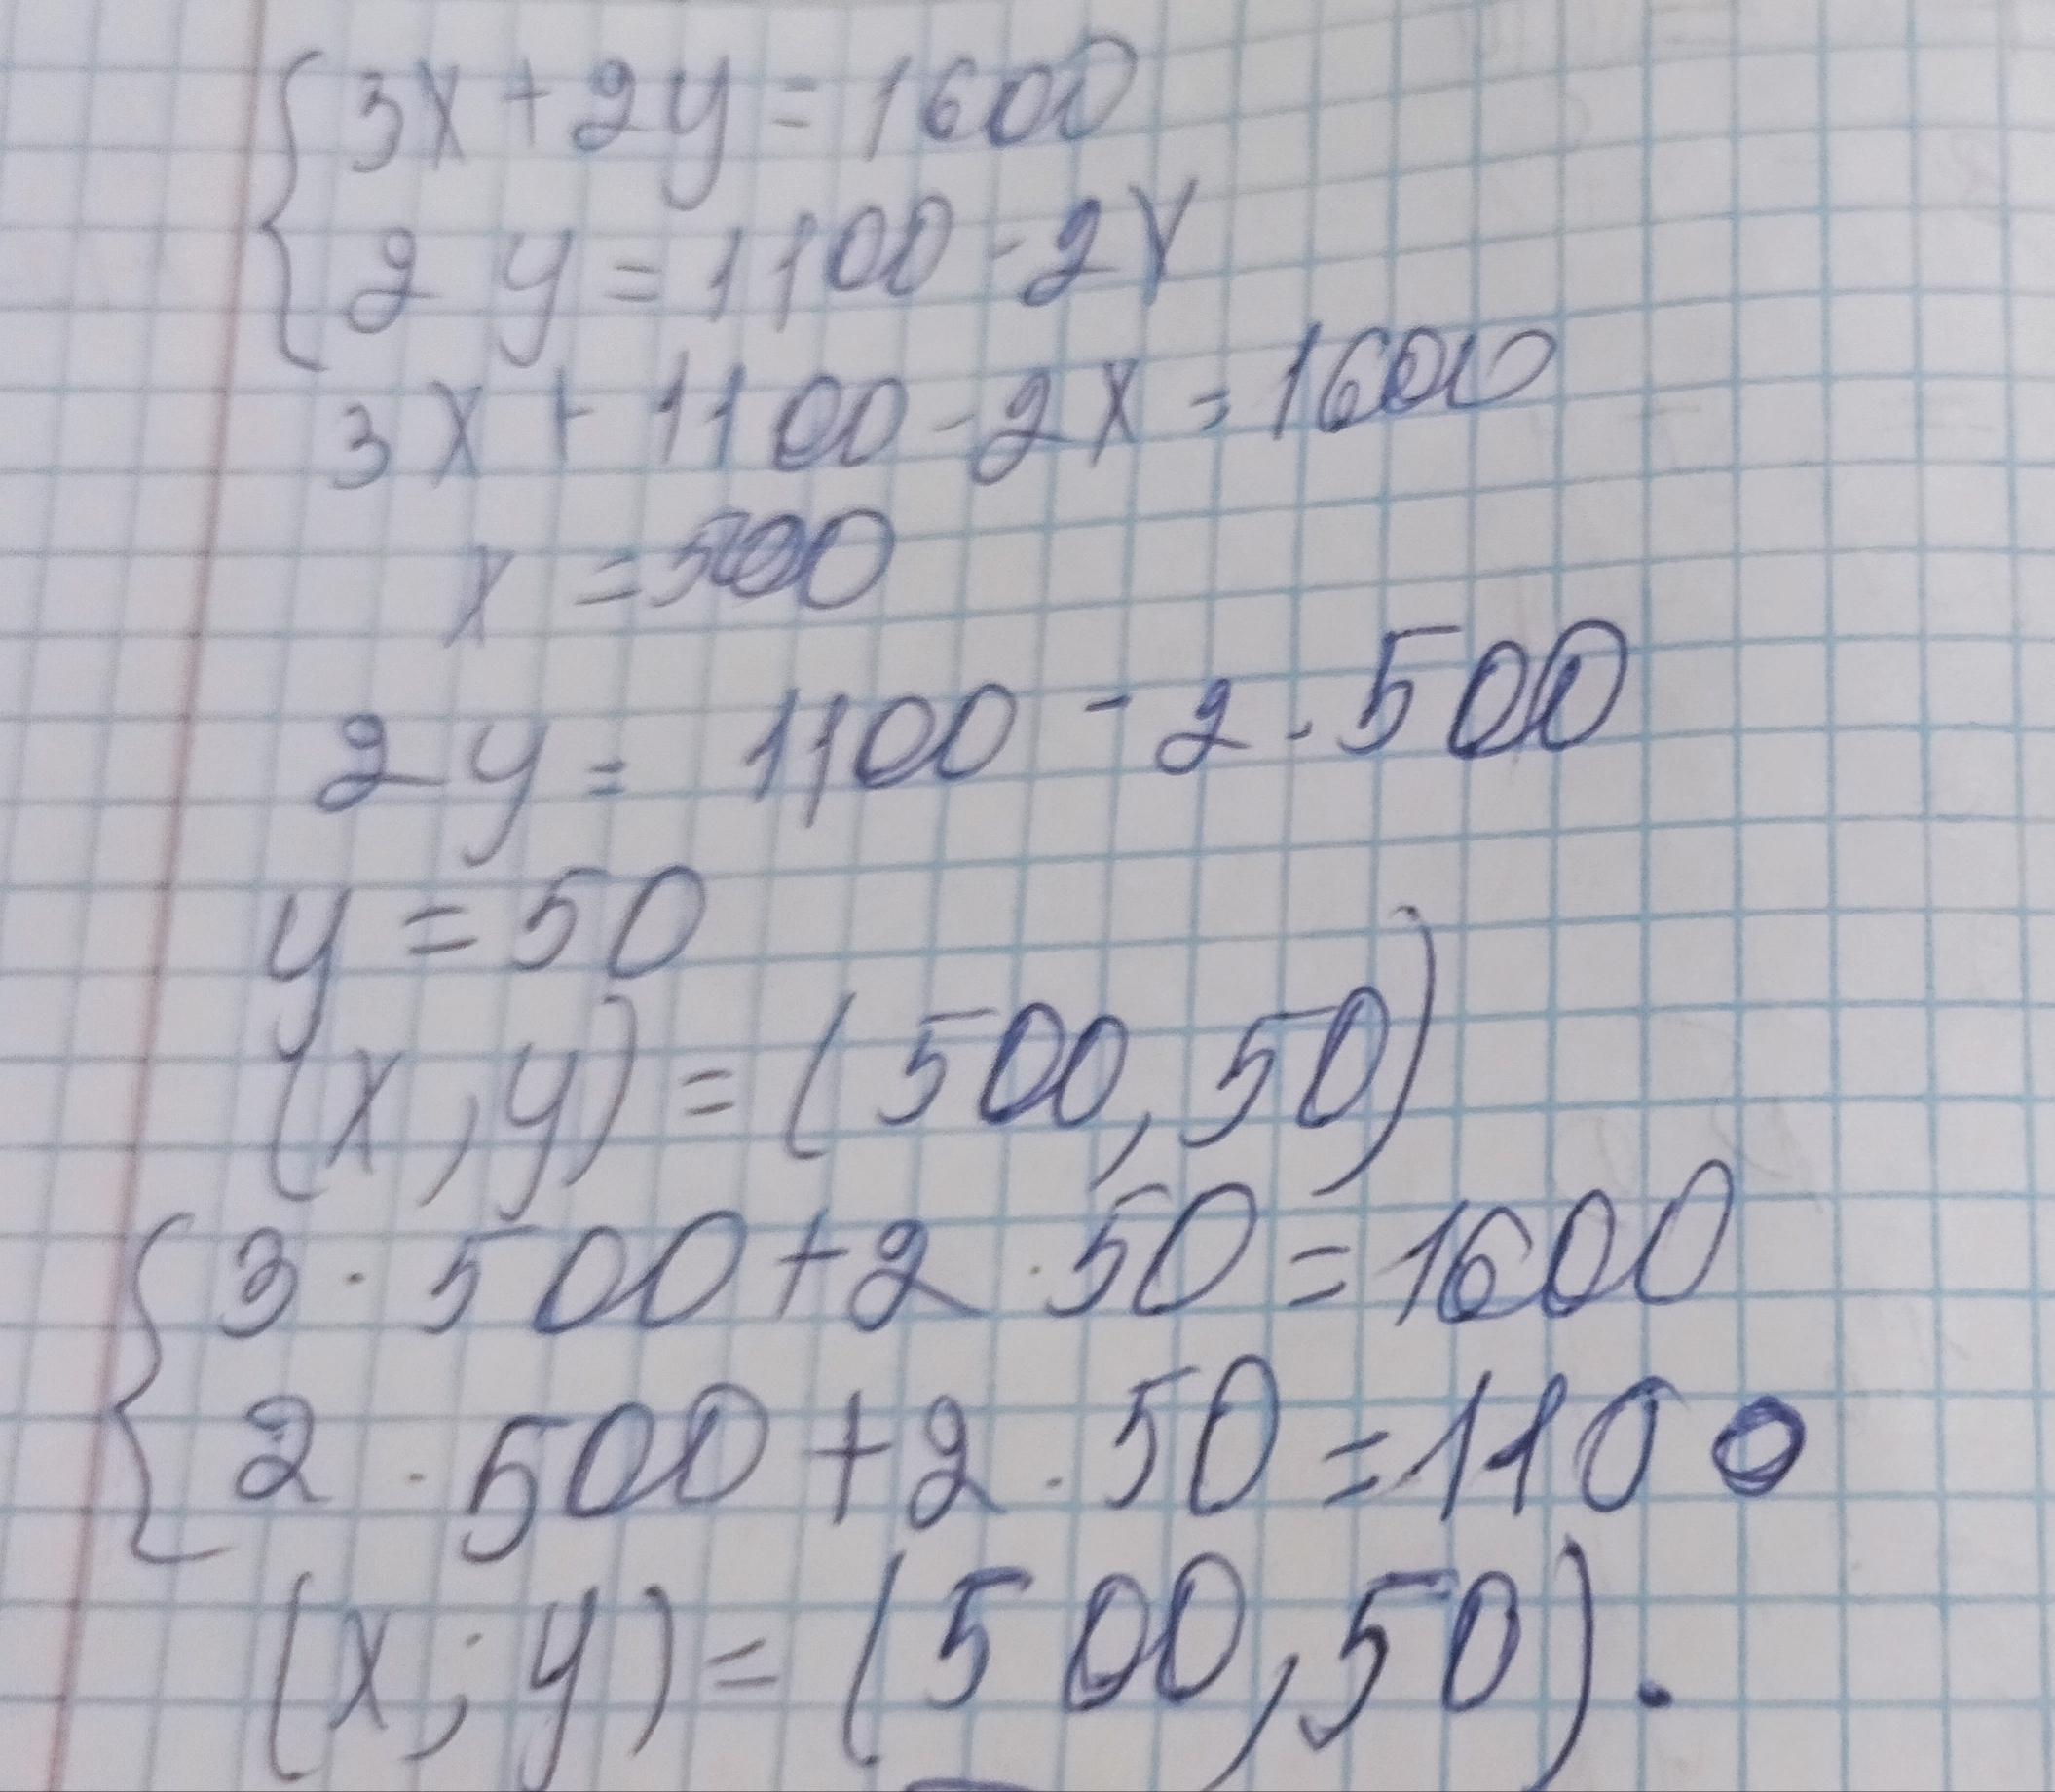 {3x + 2y = 1600
2y = 1100 - 2x
3x + 1100 - 2x = 1600
x = 500
2y = 1100 - 2 · 500
y = 50
(x, y) = (500, 50)
{3 · 500 + 2 · 50 = 1600
2 · 500 + 2 · 50 = 1100
(x; y) = (500, 50).